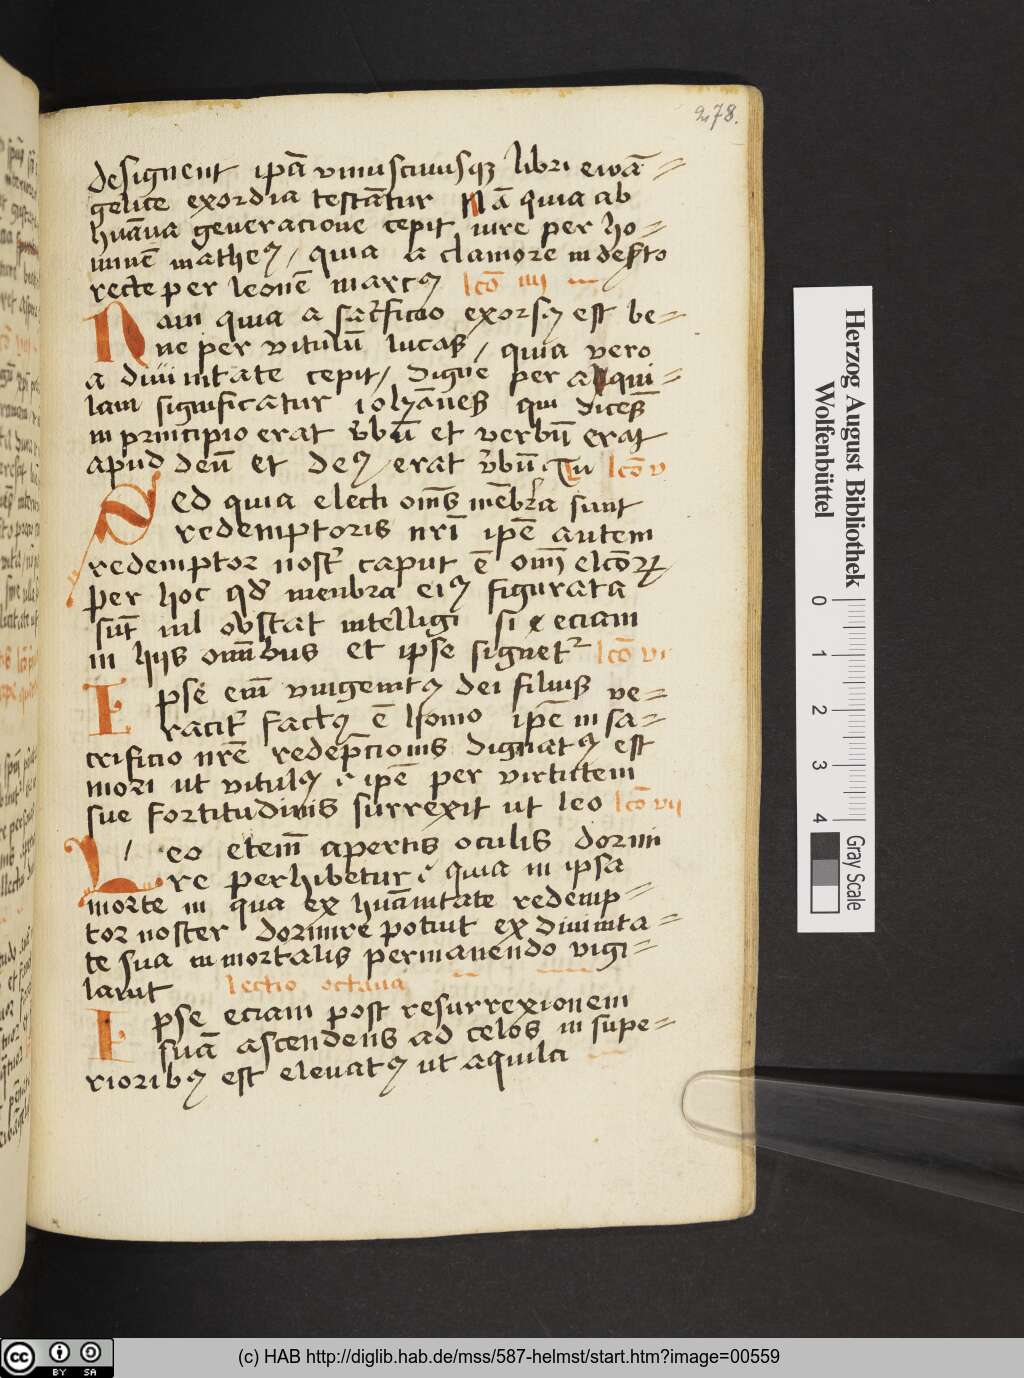 278.
designent ip̄a vniuscuiusqꝫ libri ewā⸗
gelice exordia testāt̄ur Nā quia ab
hūana generacione cepit iure per ho⸗
minē matheꝰ / quia a clamore in deserto
recte per leonē marcꝰ lcō iiij
Nam quia a sac̄rficio exorsꝰ est be⸗
ne per vitulū lucas / quia vero
a diuinitate cepit / digne per aqui⸗
lam significatur iohānes qui dicēs
in principio erat v̄bū et verbū erat
apud deū et deꝰ erat v̄bū Tu lcō v
Sed quia electi om̄s mēbra sunt
redemptoris nr̄i ip̄e autem
redemptor nost̄r caput ē om̄ elcōꝝ
per hoc qđ menbra eiꝰ figurata
sūt nil obstat intelligi si eciam
in hijs om̄ibus et ipse signet̄ lcō vi
Ipse em̄ vnigenitꝰ dei filius ve⸗
racit̄ factꝰ ē homo ip̄e in sa⸗
crificio nr̄e redēpcionis dignatꝰ est
mori ut vitulꝰ ip̄e per virtutem
sue fortitudinis surrexit ut leo lcō vij
Leo etem̄ apertis oculis dormi
re perhibetur quia in ipsa
morte in qua ex hūanitate redemp⸗
tor noster dormire potuit ex diuinita⸗
te sua inmortalis permanendo vigi⸗
lauit lectio octaua
Ipse eciam post resurrexionem
suā ascendens ad celos in supe⸗
rioribꝰ est eleuatꝰ ut aquila
Herzog August Bibliothek
Wolfenbüttel
0 1 2 3 4
Gray Scale
cc BY SA
(c) HAB http://diglib.hab.de/mss/587-helmst/start.htm?image=00559